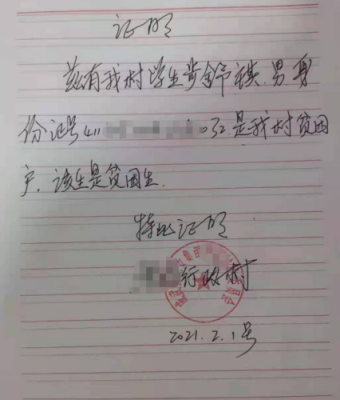 证明
兹有我村学生步舒祺.男身
份证号411 032是我村贫困
户.该生是贫困生.
特此证明
行政村
2021.2.1号